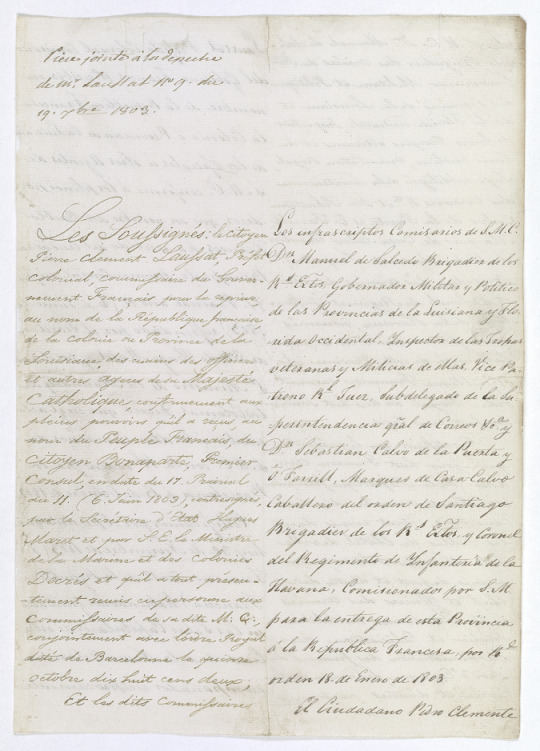 Piece jointe à la dépeche
de Mr. Laussat No. 9. du
19. 7bre 1803.
Les Soussignés: le Citoyen
Pierre Clement Laussat, Préfet
colonial, commissaire du Gouver-
nement Français pour la reprise,
au nom de la République française,
de la colonie ou Province de la
Louisiane, des mains des officiers
et autres agens de sa Majesté
Catholique, conformement aux
pleins pouvoirs qu'il a reçus au
nom du Peuple Français, du
Citoyen Bonaparte, Premier
Consul, en date du 17. Prairial
an 11. (6. Juin 1803), contresignés
par le Secrétaire d'Etat Hugues
Maret et par S. E. le Ministre
de la Marine et des colonies
Decrès et qu'il a tout présen-
tement remis en personne aux
Commissaires de sa dite M. C.,
conjointement avec l'ordre Royal
daté de Barcelonne le quinze
octobre dix huit cens deux;
Et les dits commissaires
Los infrascriptos Comisarios de S.M.C.
Dn. Manuel de Salcedo Brigadier de los
Rs. Extos, Gobernador Militar y Politico
de las Provincias de la Luisiana y Flo-
rida Occidental, Inspector de las Tropas
veteranas y Milicias de ellas, Vice Pa-
trono Rl. Juez, Subdelegado de la Su-
perintendencia gral de Correos &ca. y
Dn. Sebastian Calvo de la Puerta y
ô Farrill, Marques de Casa Calvo
Caballero del orden de Santiago
Brigadier de los Rs. Extos. y Coronel
del Regimiento de Infanteria de la
Havana, Comisionados por S.M.
para la entrega de esta Provincia
â la Republica Francesa, por Rl.
orden 18 de Enero de 1803
El Ciudadano Pedro Clemente